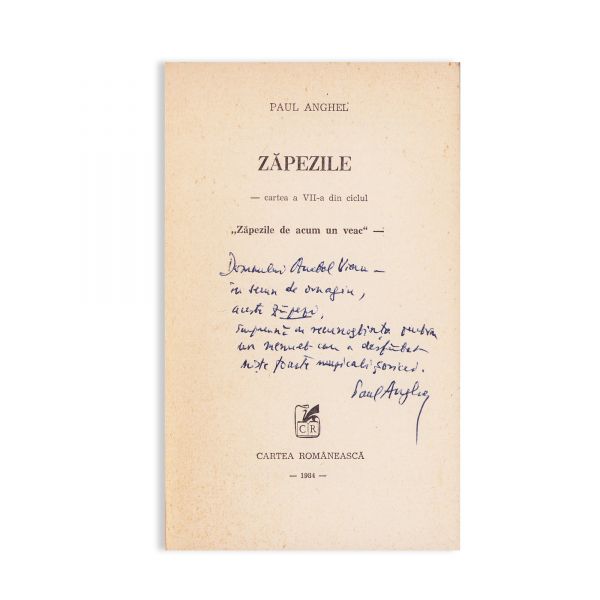 PAUL ANGHEL
ZĂPEZILE
— cartea a VII-a din ciclul
„Zăpezile de acum un veac“ —
Domnului Anatol Vieru —
în semn de omagiu,
aceste Zăpezi,
împreună cu recunoștința pentru
un menuet care a desfătat
niște foarte muzicali șoricei.
Paul Anghel
CR
CARTEA ROMÂNEASCĂ
— 1984 —